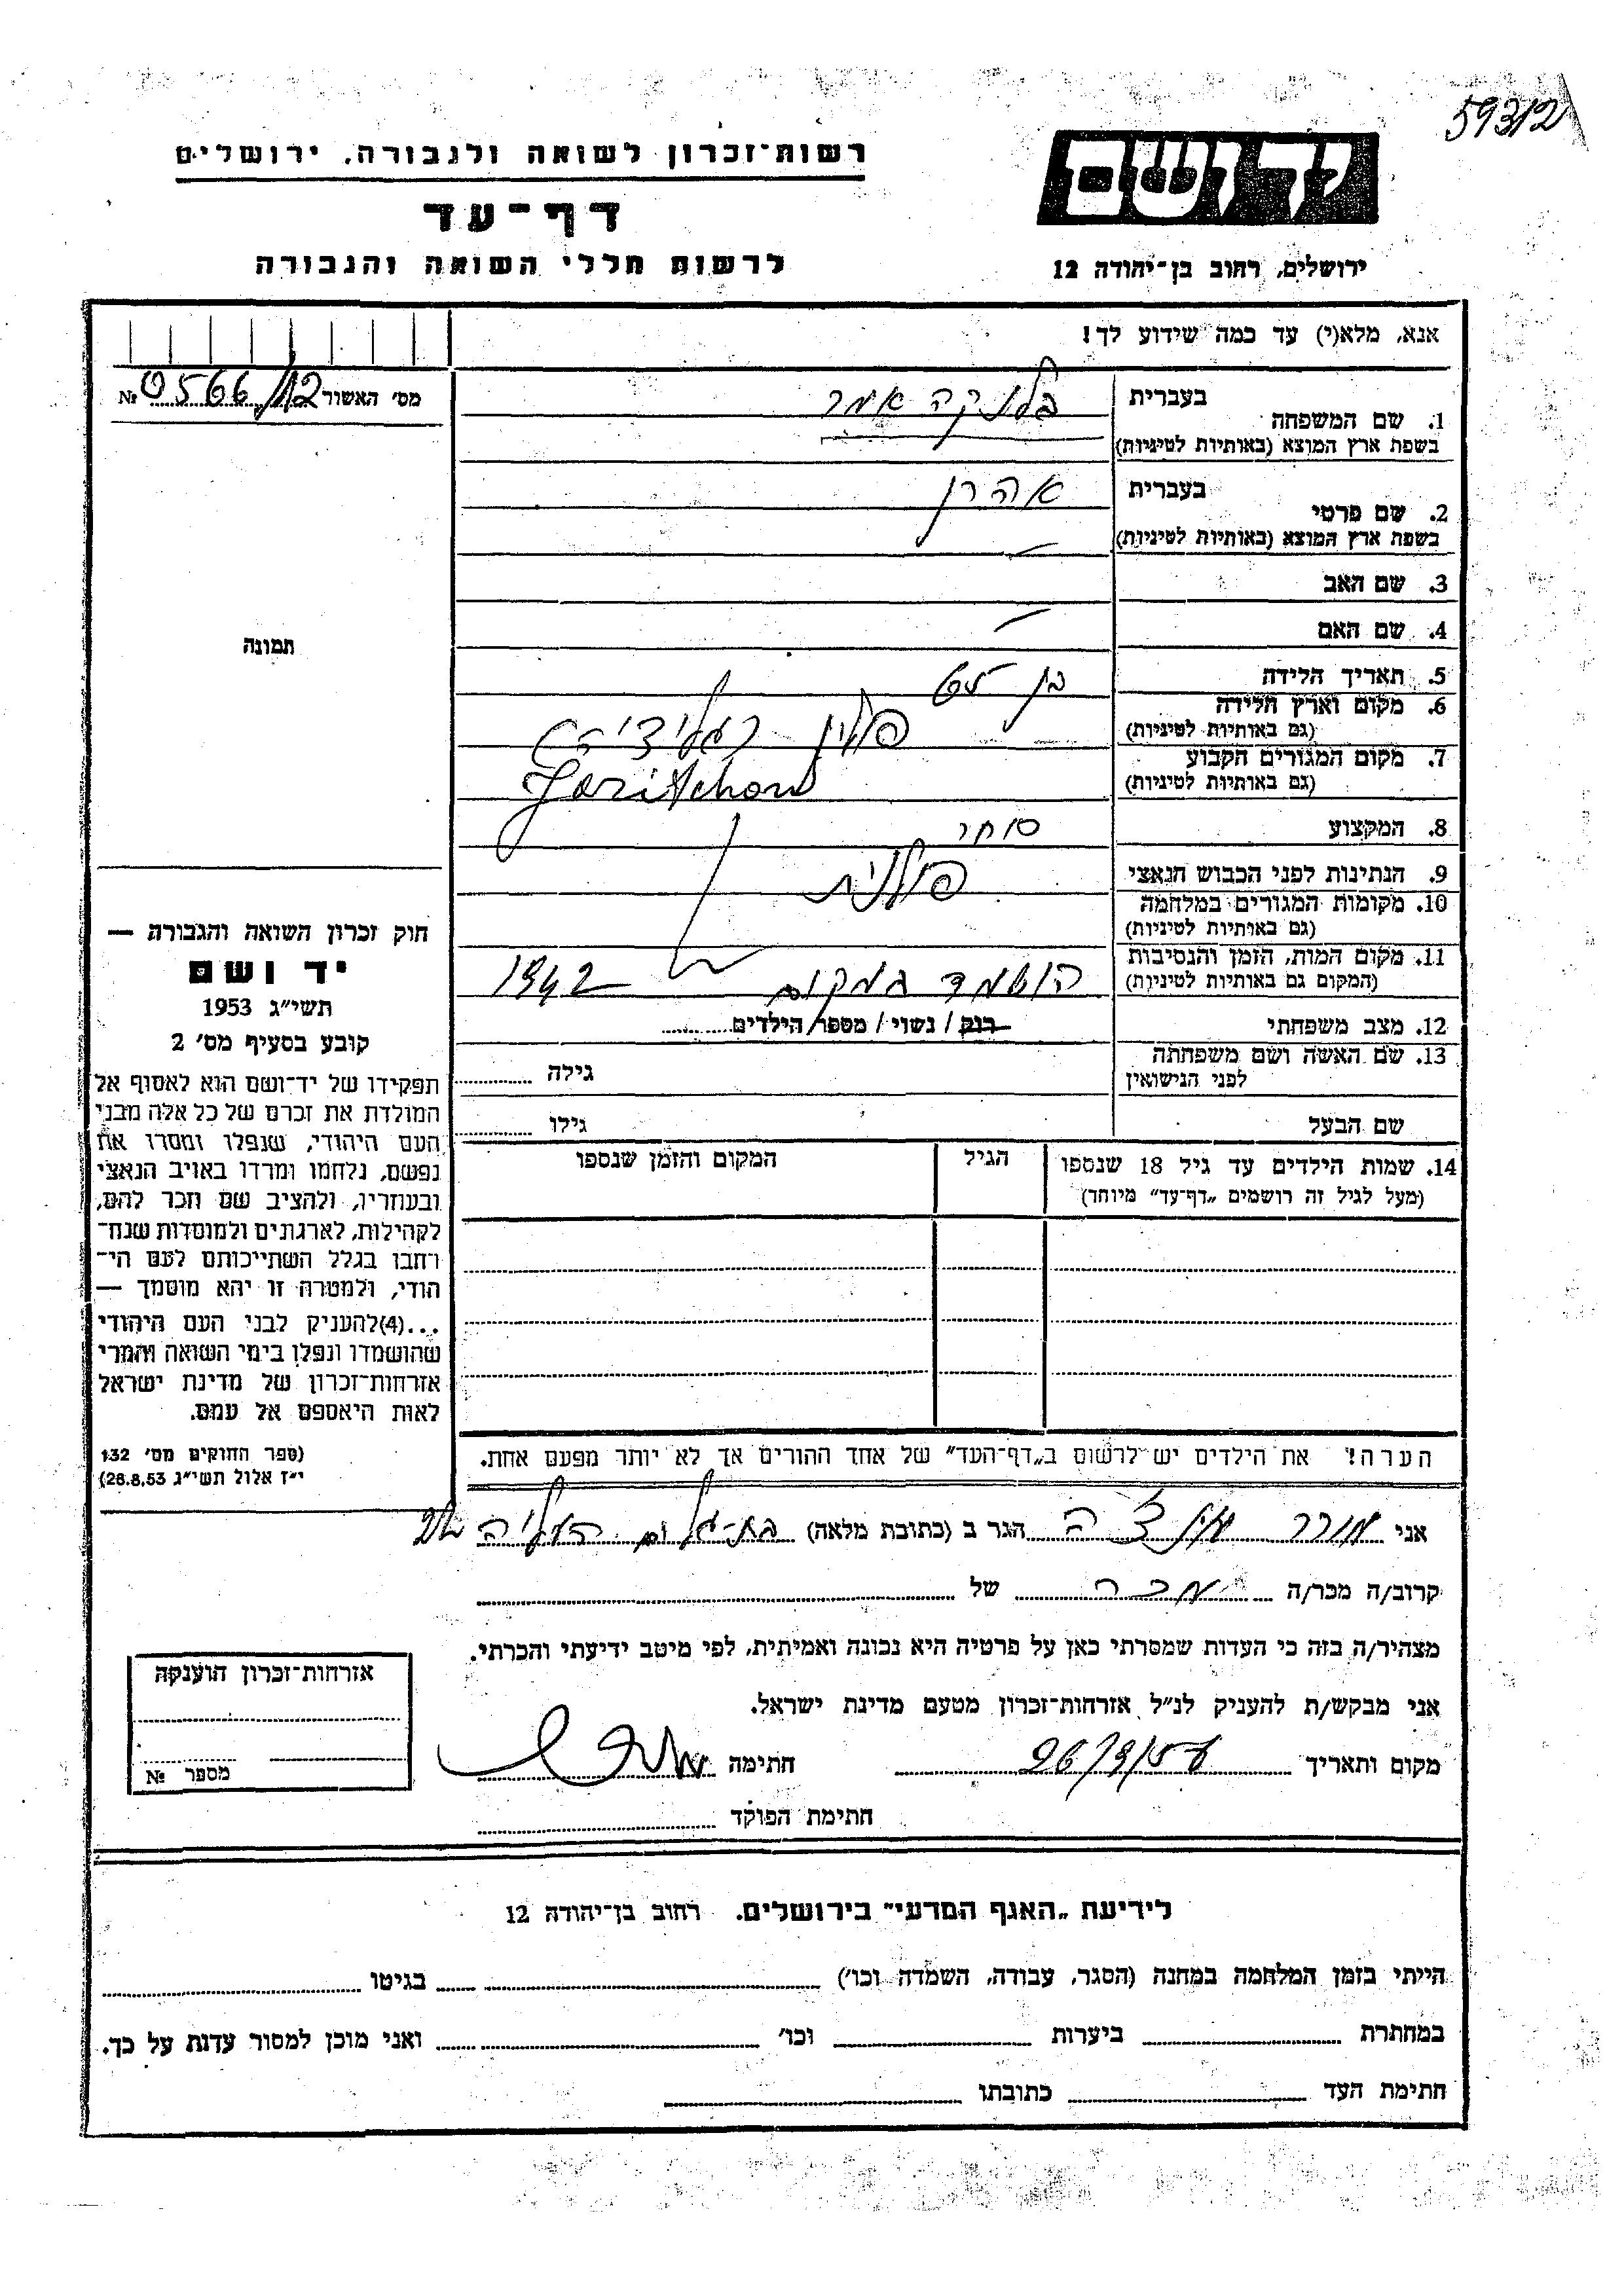 59312
יד ושם
רשות־זכרון לשואה ולגבורה, ירושלים
דף־עד
לרשות חללי השואה והגבורה
ירושלים, רחוב בן־יהודה 12
אנא, מלא(י) עד כמה שידוע לך!
מס׳ האשור 0566/12 №
1. שם המשפחה
בעברית
בשפת ארץ המוצא (באותיות לטיניות)
2. שם פרטי
בעברית אהרן
בשפת ארץ המוצא (באותיות לטיניות)
3. שם האב
4. שם האם
תמונה
5. תאריך הלידה בן
6. מקום וארץ הלידה
(גם באותיות לטיניות)
פולין (גליציה)
7. מקום המגורים הקבוע
(גם באותיות לטיניות)
8. המקצוע סוחר
9. הנתינות לפני הכבוש הנאצי פולנית
10. מקומות המגורים במלחמה
(גם באותיות לטיניות)
11. מקום המות, הזמן והנסיבות
(המקום גם באותיות לטיניות)
הושמד במקום 1942
12. מצב משפחתי רוק / נשוי / מספר הילדים
13. שם האשה ושם משפחתה
לפני הנישואין
גילה
שם הבעל גילו
14. שמות הילדים עד גיל 18 שנספו
(מעל לגיל זה רושמים „דף־עד” מיוחד)
הגיל
המקום והזמן שנספו
הערה! את הילדים יש לרשום ב„דף־העד” של אחד ההורים אך לא יותר מפעם אחת.
חוק זכרון השואה והגבורה —
יד ושם
תשי״ג 1953
קובע בסעיף מס׳ 2
תפקידו של יד־ושם הוא לאסוף אל
המולדת את זכרם של כל אלה מבני
העם היהודי, שנפלו ומסרו את
נפשם, נלחמו ומרדו באויב הנאצי
ובעוזריו, ולהציב שם וזכר להם,
לקהילות, לארגונים ולמוסדות שנח־
רחבו בגלל השתייכותם לעם הי־
הודי, ולמטרה זו יהא מוסמך —
...(4)להעניק לבני העם היהודי
שהושמדו ונפלו בימי השואה והמרי
אזרחות־זכרון של מדינת ישראל
לאות היאספם אל עמם.
(ספר החוקים מס׳ 132
י״ז אלול תשי״ג 28.8.53)
אני הגר ב (כתובת מלאה) בת־גלים העליה
קרוב/ה מכר/ה מכרה של
מצהיר/ה בזה כי העדות שמסרתי כאן על פרטיה היא נכונה ואמיתית, לפי מיטב ידיעתי והכרתי.
אני מבקש/ת להעניק לנ״ל אזרחות־זכרון מטעם מדינת ישראל.
מקום ותאריך 26/9/56 חתימה
חתימת הפוקד
אזרחות־זכרון הוענקה
מספר №
לידיעת „האגף המדעי” בירושלים. רחוב בן־יהודה 12
הייתי בזמן המלחמה במחנה (הסגר, עבודה, השמדה וכו׳) בגיטו
במחתרת ביערות וכו׳ ואני מוכן למסור עדות על כך.
חתימת העד כתובתו